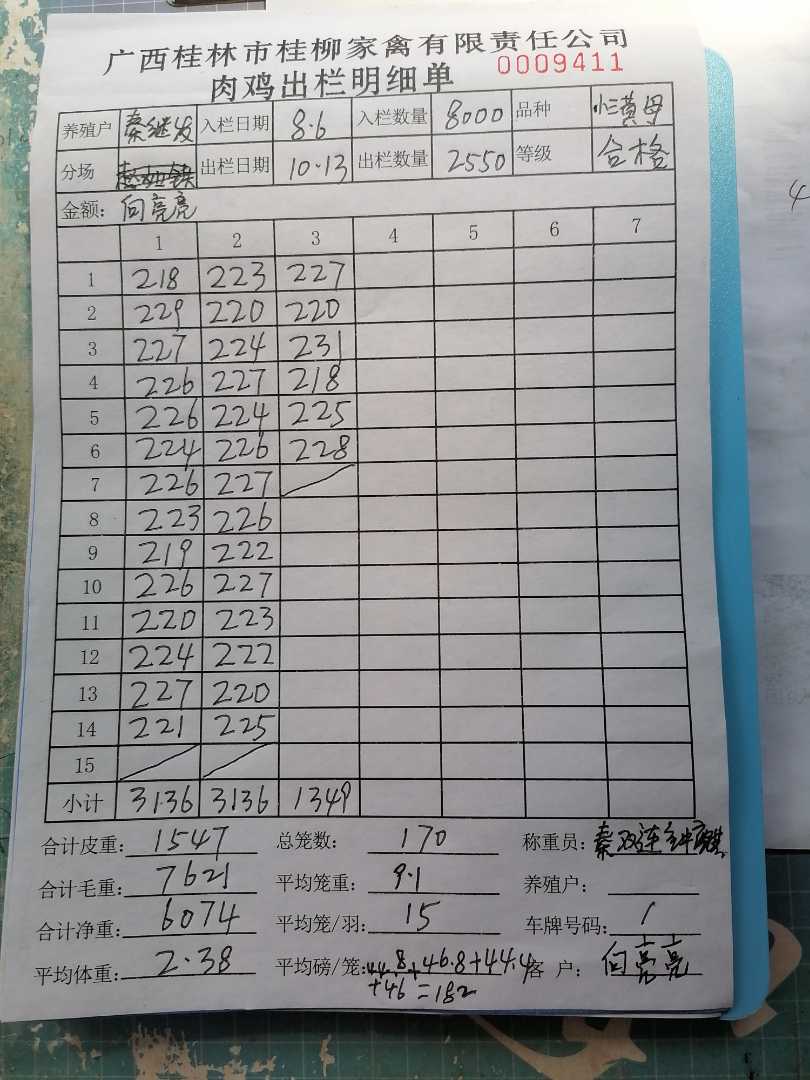 广西桂林市桂柳家禽有限责任公司
肉鸡出栏明细单 0009411
养殖户 秦继发 入栏日期 8.6 入栏数量 8000 品种 黄母
分场 出栏日期 10.13 出栏数量 2550 等级 合格
金额: 向亮亮
1 2 3 4 5 6 7
1 218 223 227
2 229 220 220
3 227 224 231
4 226 227 218
5 226 224 225
6 224 226 228
7 226 227
8 223 226
9 219 222
10 226 227
11 220 223
12 224 222
13 227 220
14 221 225
15
小计 3136 3136 1349
合计皮重: 1547 总笼数: 170 称重员: 秦双连
合计毛重: 7621 平均笼重: 9.1 养殖户:
合计净重: 6074 平均笼/羽: 15 车牌号码: /
平均体重: 2.38 平均磅/笼: 44.8+46.8+44.4 客户: 向亮亮
+46=182
4